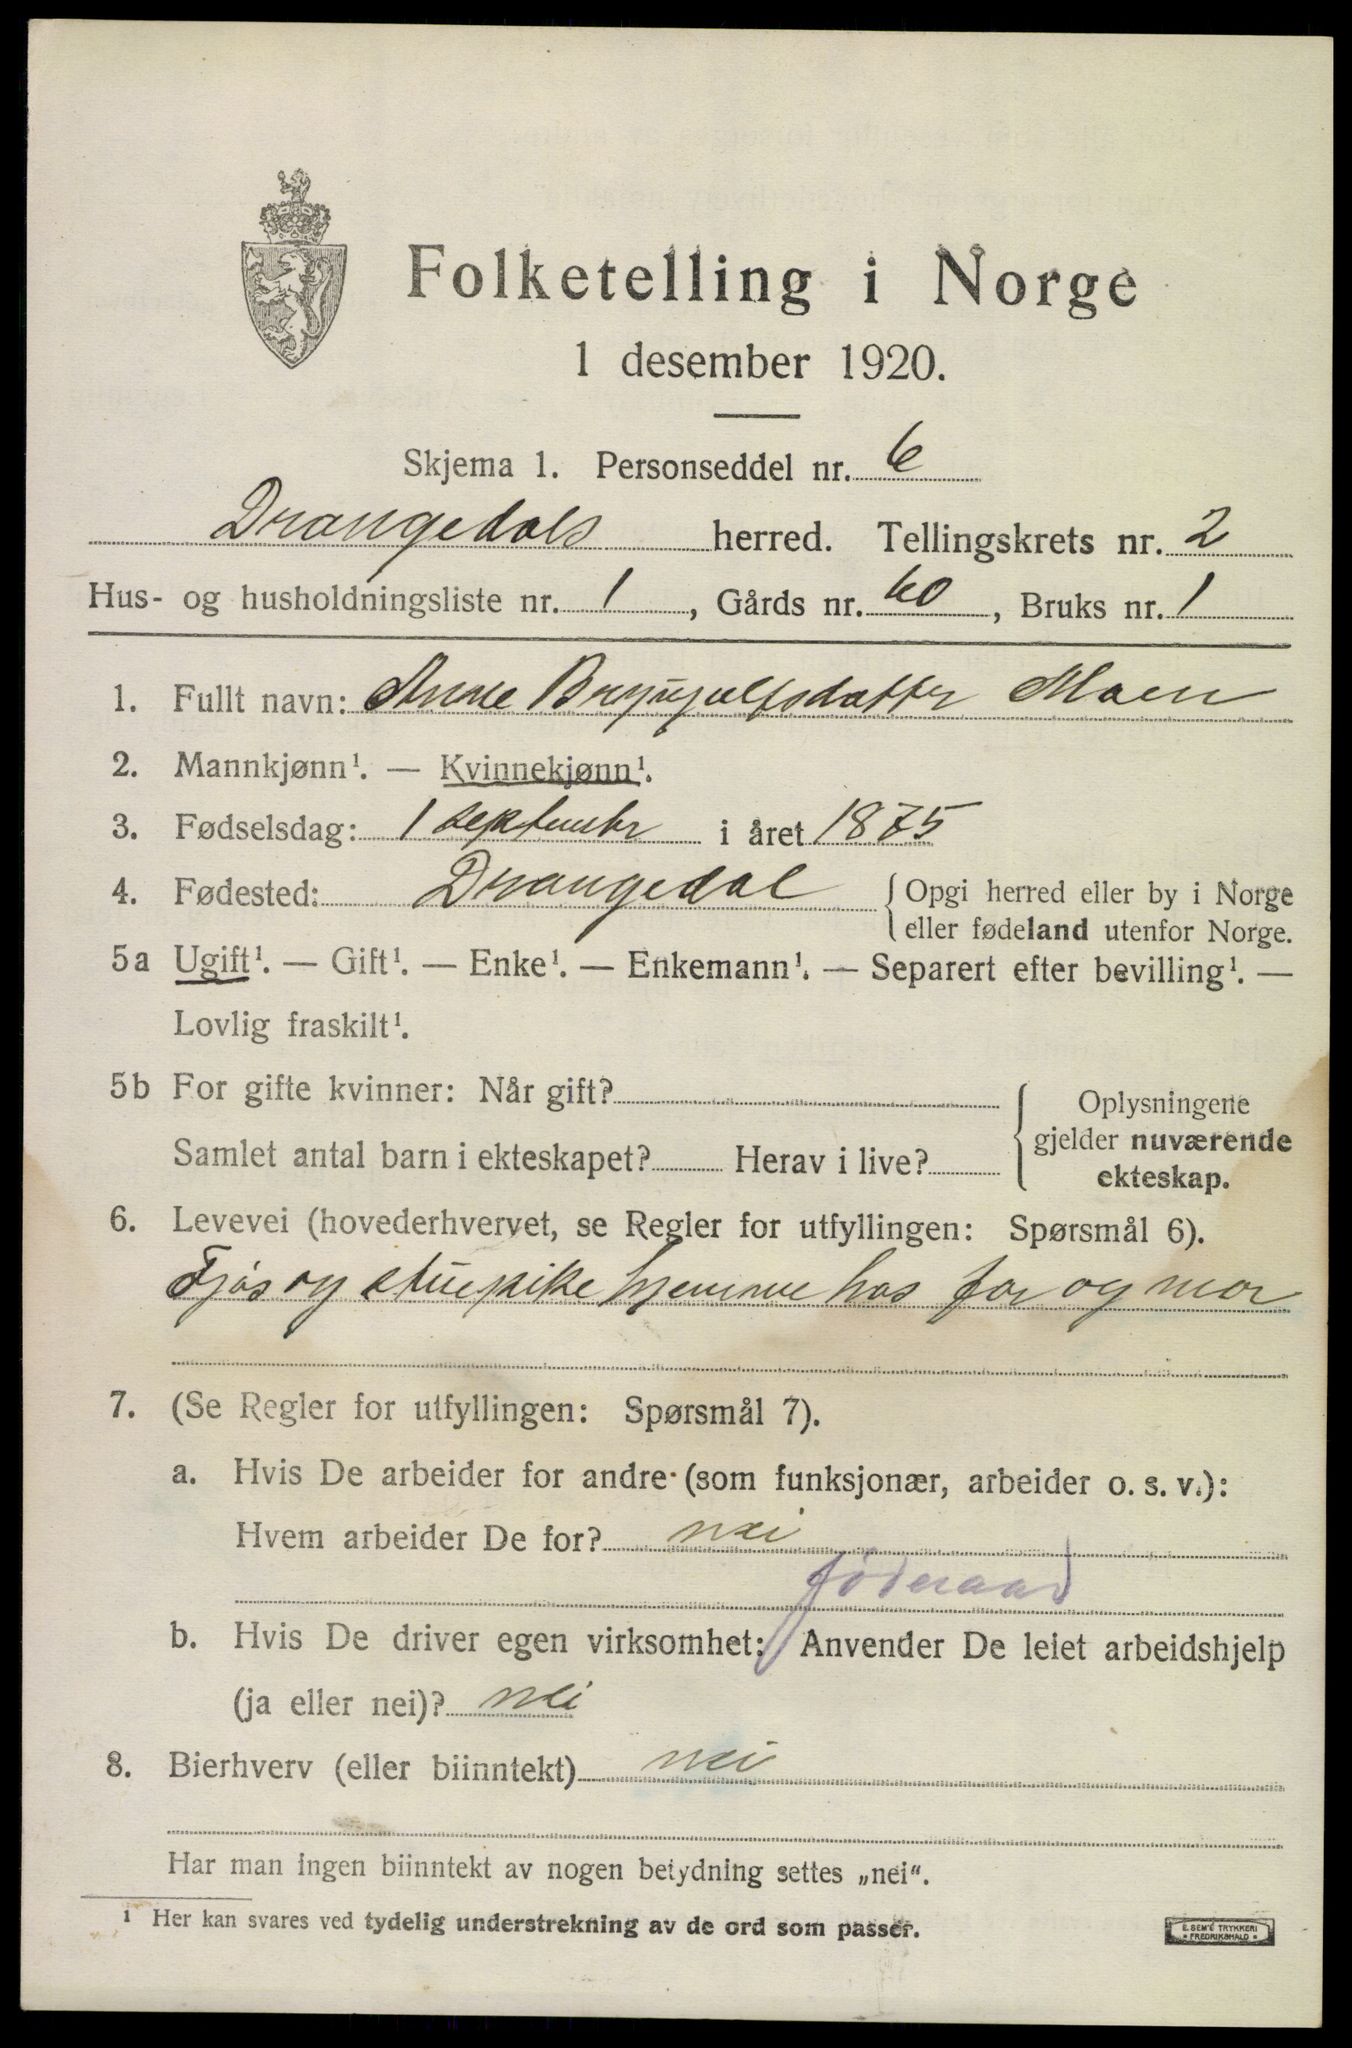 Folketelling i Norge
1 desember 1920.
Skjema 1. Personseddel nr. 6
Drangedals herred. Tellingskrets nr. 2
Hus- og husholdningsliste nr. 1, Gårds nr. 60, Bruks nr. 1
1. Fullt navn: Anne Brynjulfsdatter Moen
2. Mannkjønn¹. — Kvinnekjønn¹.
3. Fødselsdag: 1 september i året 1875
4. Fødested: Drangedal {Opgi herred eller by i Norge
eller fødeland utenfor Norge.
5a Ugift¹. — Gift¹. — Enke¹. — Enkemann¹. — Separert efter bevilling¹. —
Lovlig fraskilt¹.
5b For gifte kvinner: Når gift?
Samlet antal barn i ekteskapet? Herav i live?
Oplysningene
gjelder nuværende
ekteskap.
6. Levevei (hovederhvervet, se Regler for utfyllingen: Spørsmål 6).
Fjøs og stuepike hjemme hos far og mor
7. (Se Regler for utfyllingen: Spørsmål 7).
a. Hvis De arbeider for andre (som funksjonær, arbeider o. s. v.):
Hvem arbeider De for? nei
føderaad
b. Hvis De driver egen virksomhet: Anvender De leiet arbeidshjelp
(ja eller nei)? nei
8. Bierhverv (eller biinntekt) nei
Har man ingen biinntekt av nogen betydning settes „nei“.
¹ Her kan svares ved tydelig understrekning av de ord som passer.
E. SEM'S TRYKKERI
FREDRIKSHALD